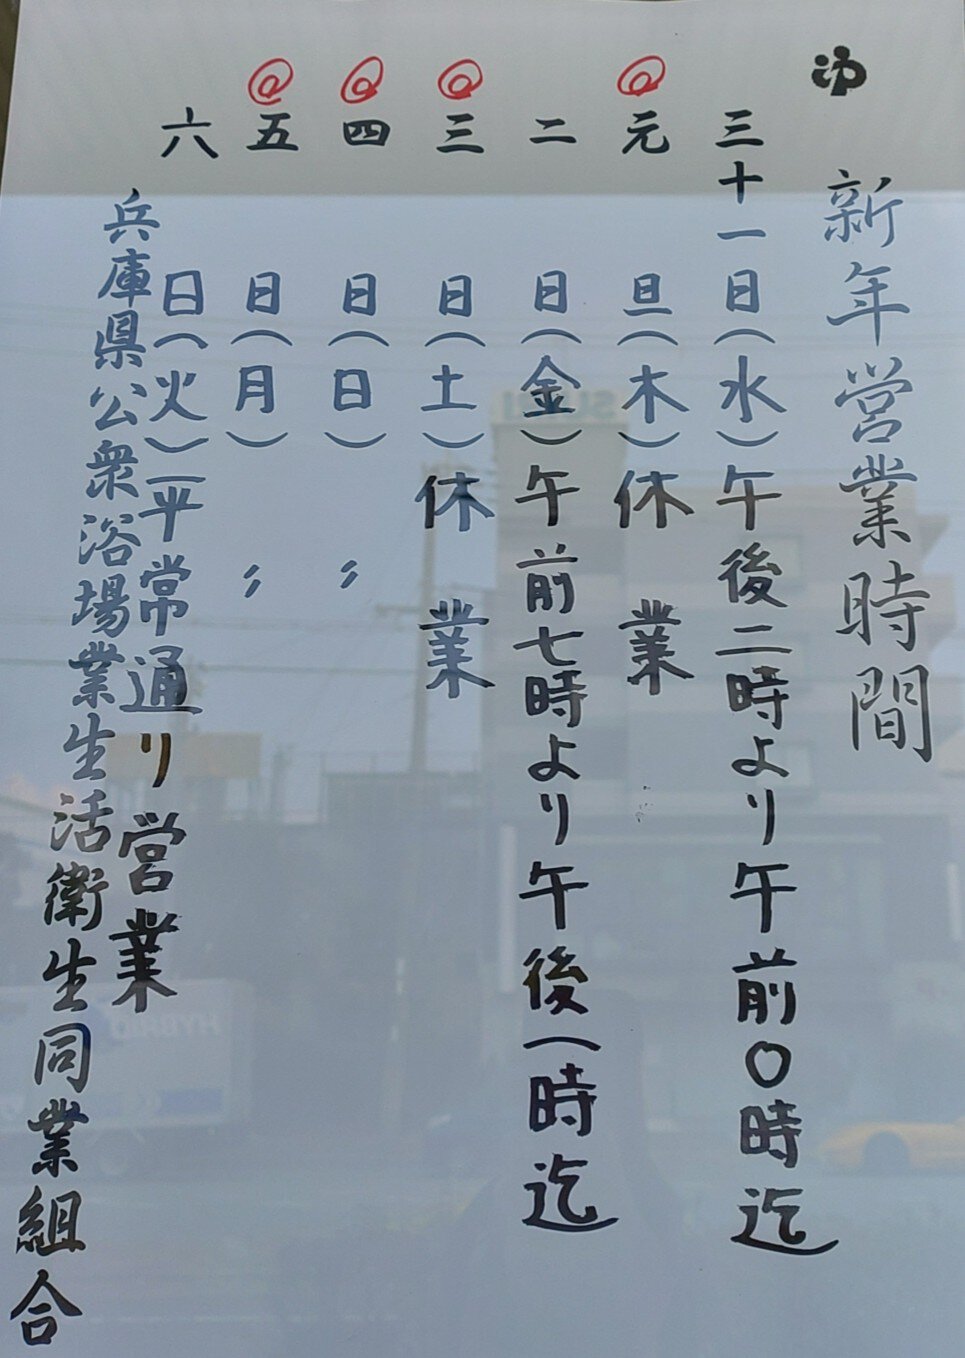 新年営業時間
三十一日(水)午後二時より午前〇時迄
元旦(木)休業
二日(金)午前七時より午後一時迄
三日(土)休業
四日(日)〃
五日(月)〃
六日(火)平常通り営業
兵庫県公衆浴場業生活衛生同業組合